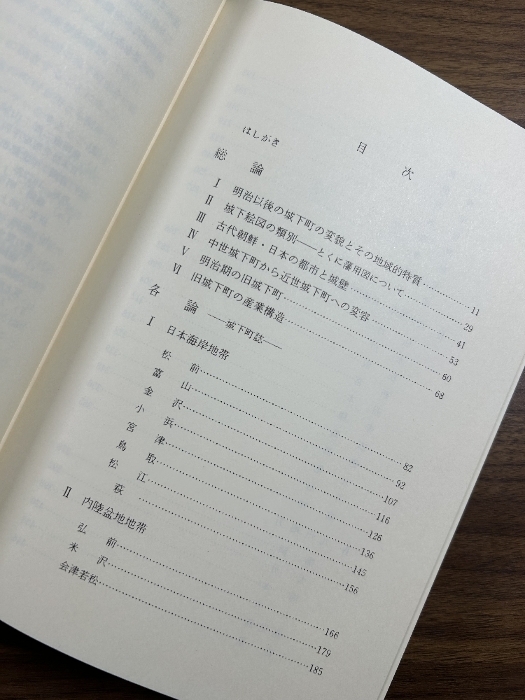 目次
はしがき
総論
Ⅰ 明治以後の城下町の変貌とその地域的特質……11
Ⅱ 城下絵図の類別――とくに藩用図について……29
Ⅲ 古代朝鮮・日本の都市と城壁……41
Ⅳ 中世城下町から近世城下町への変容……53
Ⅴ 明治期の旧城下町……60
Ⅵ 旧城下町の産業構造……68
各論 ――城下町誌――
Ⅰ 日本海岸地帯
松前……82
富山……92
金沢……107
小浜……116
宮津……126
鳥取……136
松江……145
萩……156
Ⅱ 内陸盆地地帯
弘前……166
米沢……179
会津若松……185